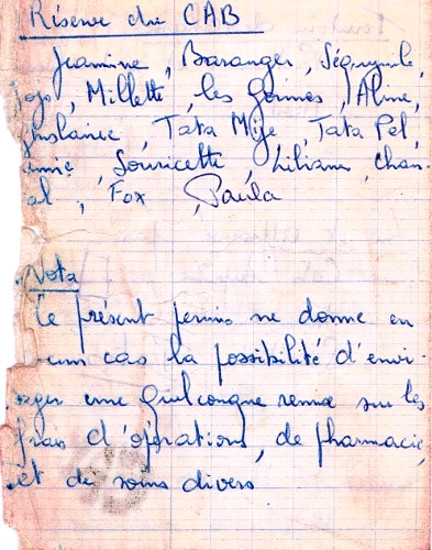 Réserve du CAB
Jeannine, Baranger,
Jojo, Millette, les Germes, Aline,
Ghislaine, Tata Mije, Tata Pel,
Annie, Souricette, Liliane, Chan-
al, Fox, Paula
Nota
Ce présent permis ne donne en
aucun cas la possibilité d'envi-
sager une quelconque remise sur les
frais d'opérations, de pharmacie,
et de soins divers